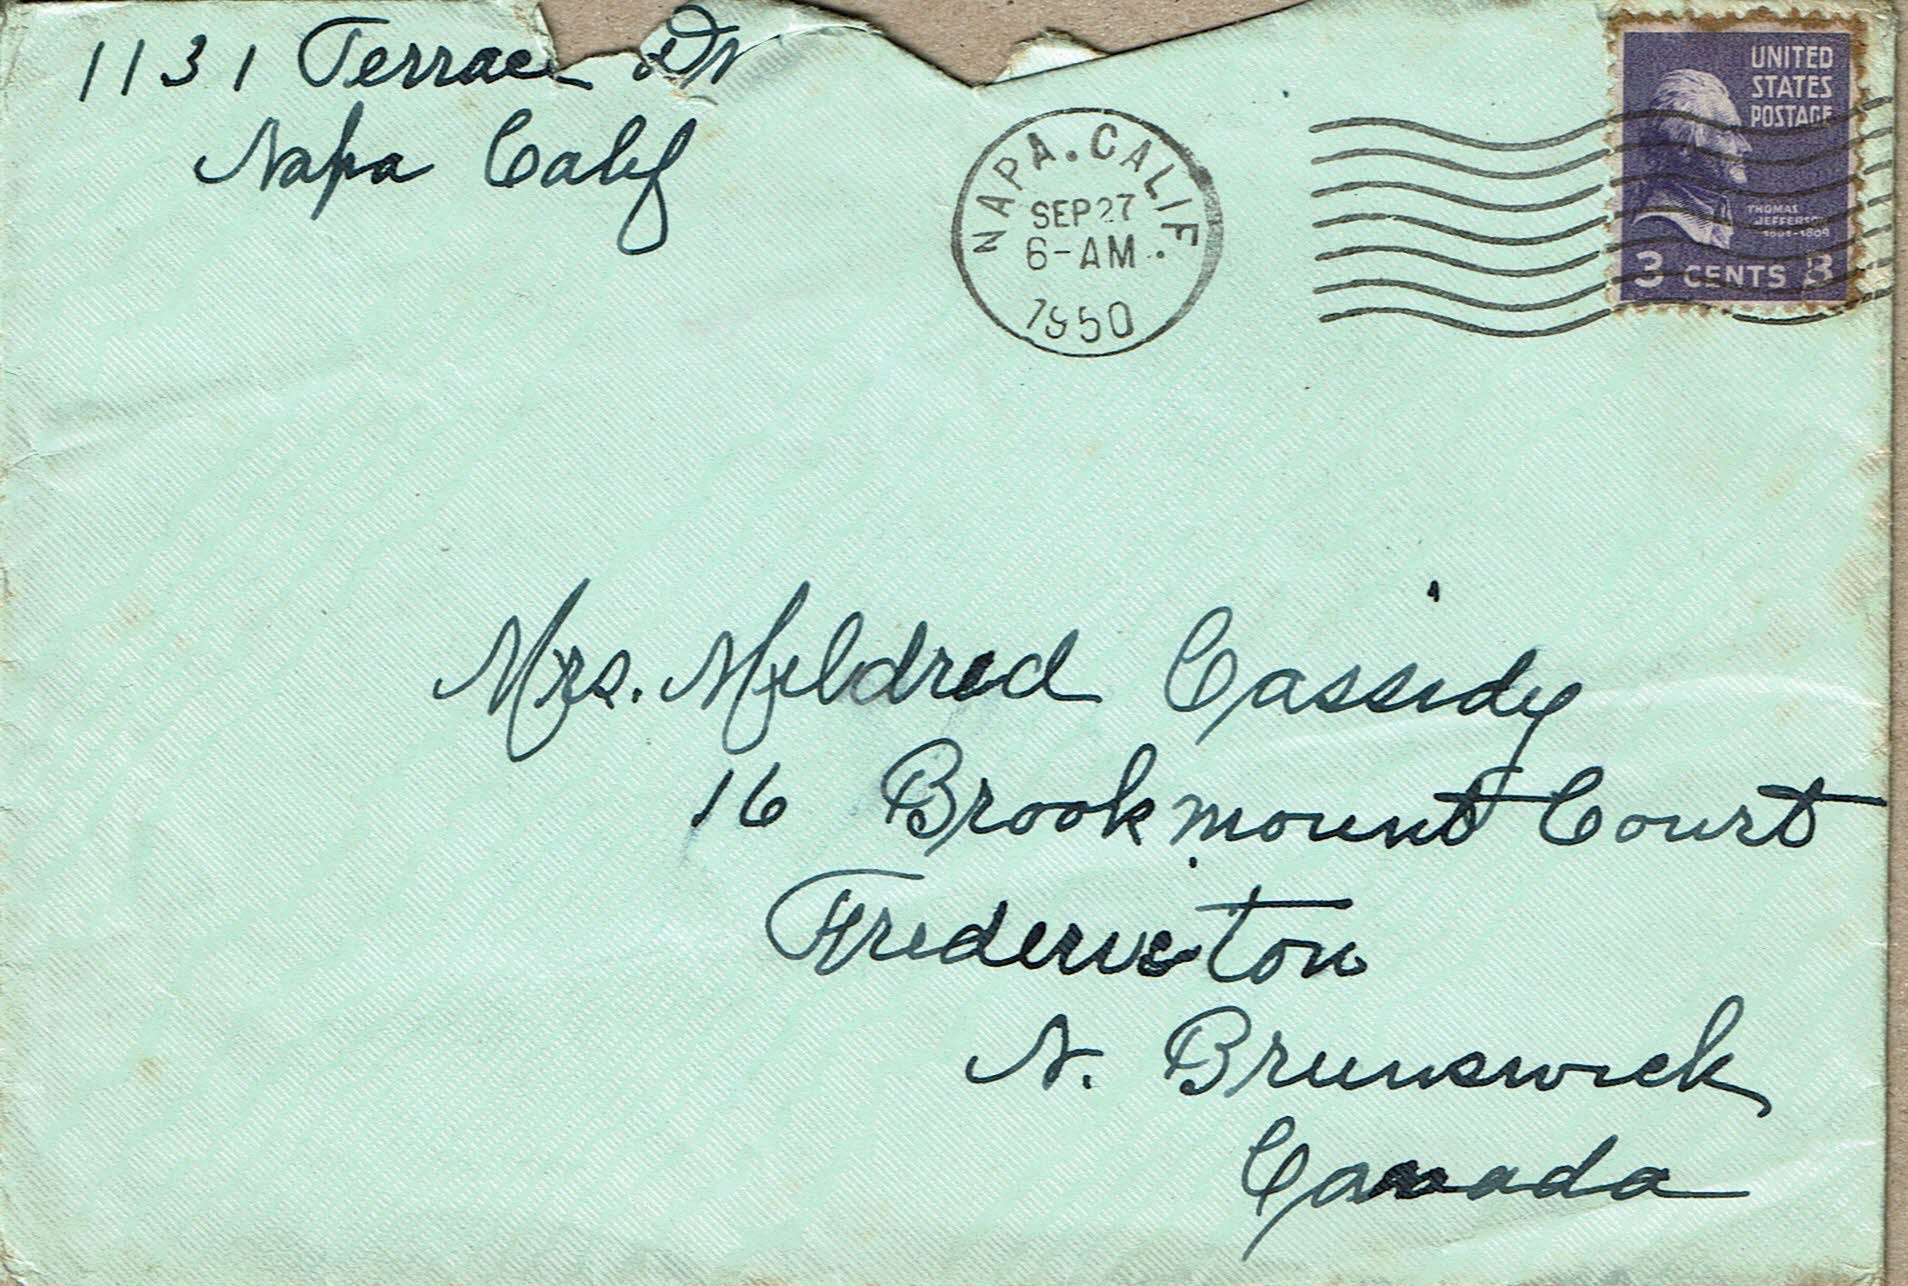 1131 Terrace Dr
Napa Calif
NAPA. CALIF.
SEP 27
6-AM
1950
UNITED
STATES
POSTAGE
THOMAS
JEFFERSON
1801-1809
3 CENTS 3
Mrs. Mildred Cassidy
16 Brookmount Court
Fredericton
N. Brunswick
Canada